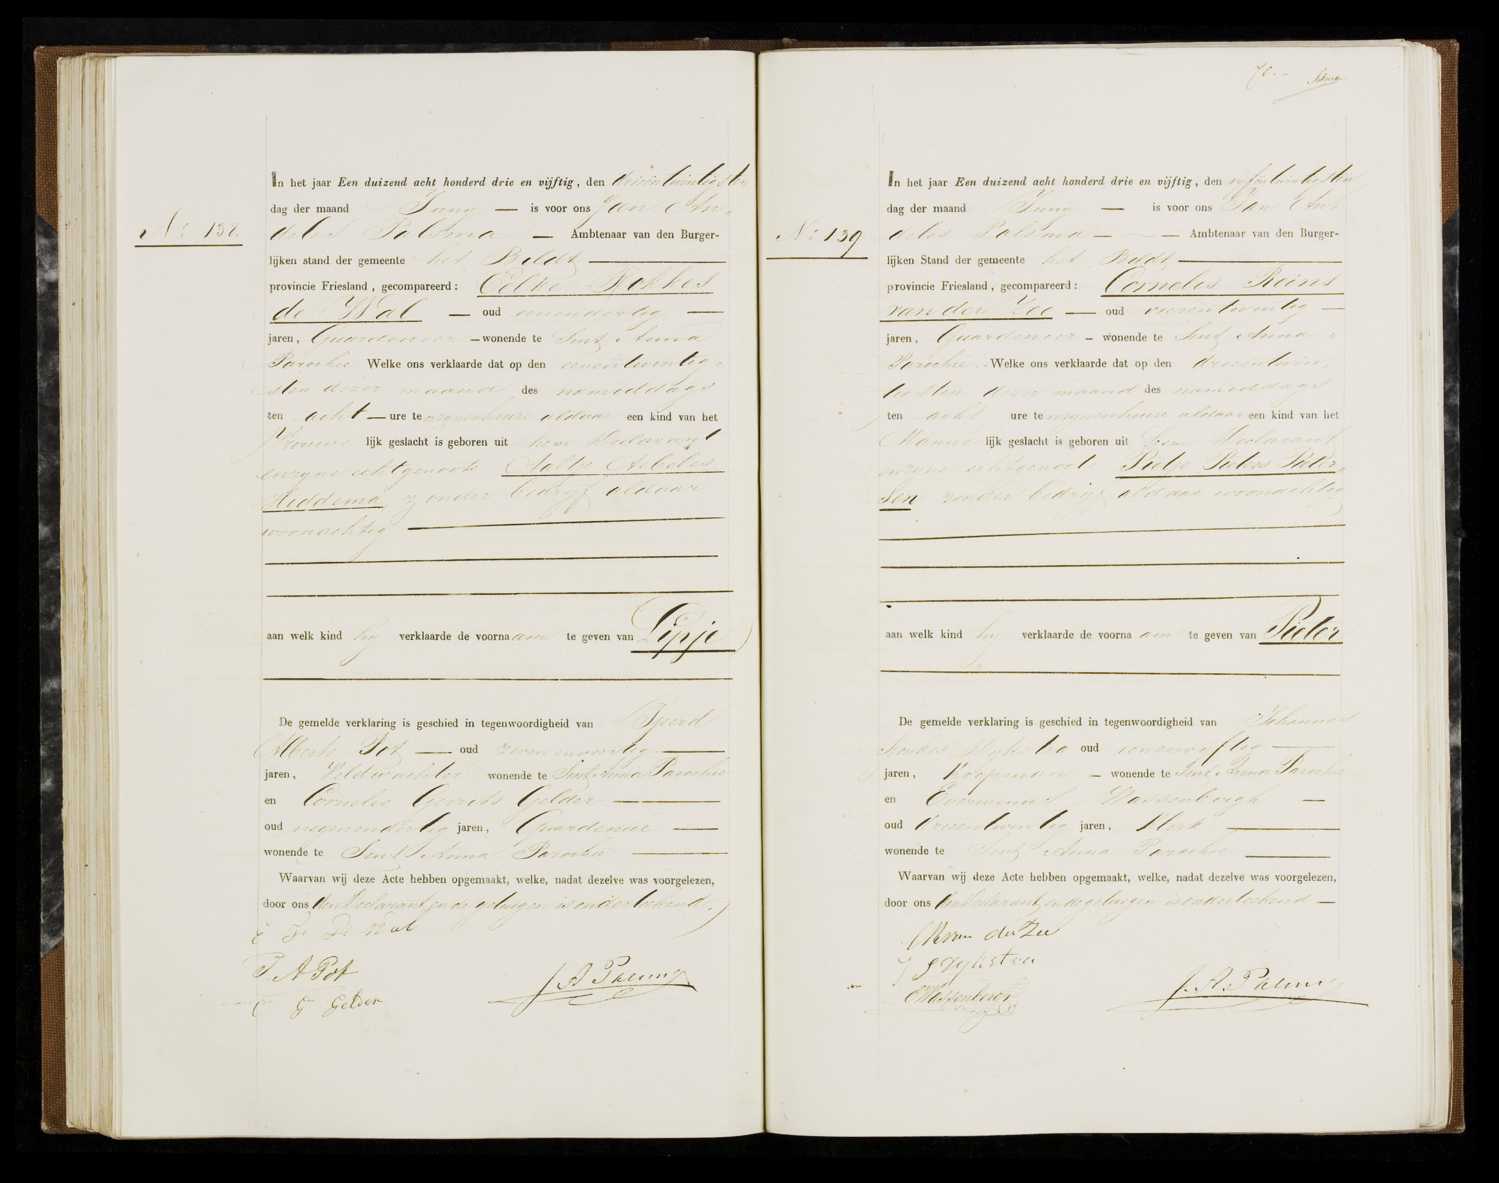 No 138
In het jaar Een duizend acht honderd drie en vijftig, den drieentwintigsten
dag der maand Juny — is voor ons Jan An-
deles Palsma — Ambtenaar van den Burger-
lijken stand der gemeente het Bildt
provincie Friesland, gecompareerd: Eelke Fokkes
de Wal — oud eenendertig —
jaren, Guardenier — wonende te Sint Anna
Parochie Welke ons verklaarde dat op den eenentwintig-
sten dezer maand des namiddags
ten acht — ure te zijnenhuize aldaar een kind van het
Vrouwe lijk geslacht is geboren uit hem declarant
en zyne echtgenoote Aaltje
Hiddema zonder bedryf aldaar
woonachtig
aan welk kind hy verklaarde de voornaam te geven van Pypje
De gemelde verklaring is geschied in tegenwoordigheid van Sjoerd
Alberts Pot — oud jaren, Veldwachter wonende te Sint Anna Parochie
en Cornelis Gerrits Gelder —
oud negenendertig jaren, Guardenier —
wonende te Sint Anna Parochie
Waarvan wij deze Acte hebben opgemaakt, welke, nadat dezelve was voorgelezen,
door ons den Declarant en de getuigen is onderteekend.
E F de Wal
S A Pot
C G Gelder
J. A. Palsma
No 139
In het jaar Een duizend acht honderd drie en vijftig, den vyfentwintigsten
dag der maand Juny — is voor ons Jan An-
deles Palsma — Ambtenaar van den Burger-
lijken Stand der gemeente het Bildt
provincie Friesland, gecompareerd: Cornelis Reins
van der Zee — oud vierentwintig —
jaren, Guardenier — wonende te Sint Anna
Parochie Welke ons verklaarde dat op den drieentwin-
tigsten dezer maand des namiddags
ten acht ure te zijnenhuize aldaar een kind van het
Manne lijk geslacht is geboren uit hem Declarant
en zyne echtgenoote Pieters Pieter-
sen zonder bedryf aldaar woonachtig
aan welk kind hy verklaarde de voornaam te geven van Pieter
De gemelde verklaring is geschied in tegenwoordigheid van Johannes
Sjoukes Dykstra oud eenenvyftig —
jaren, Koopman — wonende te Sint Anna Parochie
en Wassenbergh —
oud drieentwintig jaren, Klerk —
wonende te Sint Anna Parochie
Waarvan wij deze Acte hebben opgemaakt, welke, nadat dezelve was voorgelezen,
door ons den Declarant en de getuigen is onderteekend —
C R van der Zee
J S Dykstra
E Wassenbergh
J. A. Palsma